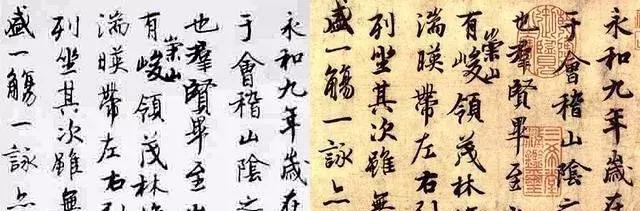 永和九年歲在
于會稽山陰之
也羣賢畢至
有崇山峻領茂林脩
湍暎帶左右引
列坐其次雖無
盛一觴一詠亦
永和九年歲在
于會稽山陰之
也羣賢畢至
有崇山峻領茂林脩
湍暎帶左右引
列坐其次雖無
盛一觴一詠亦